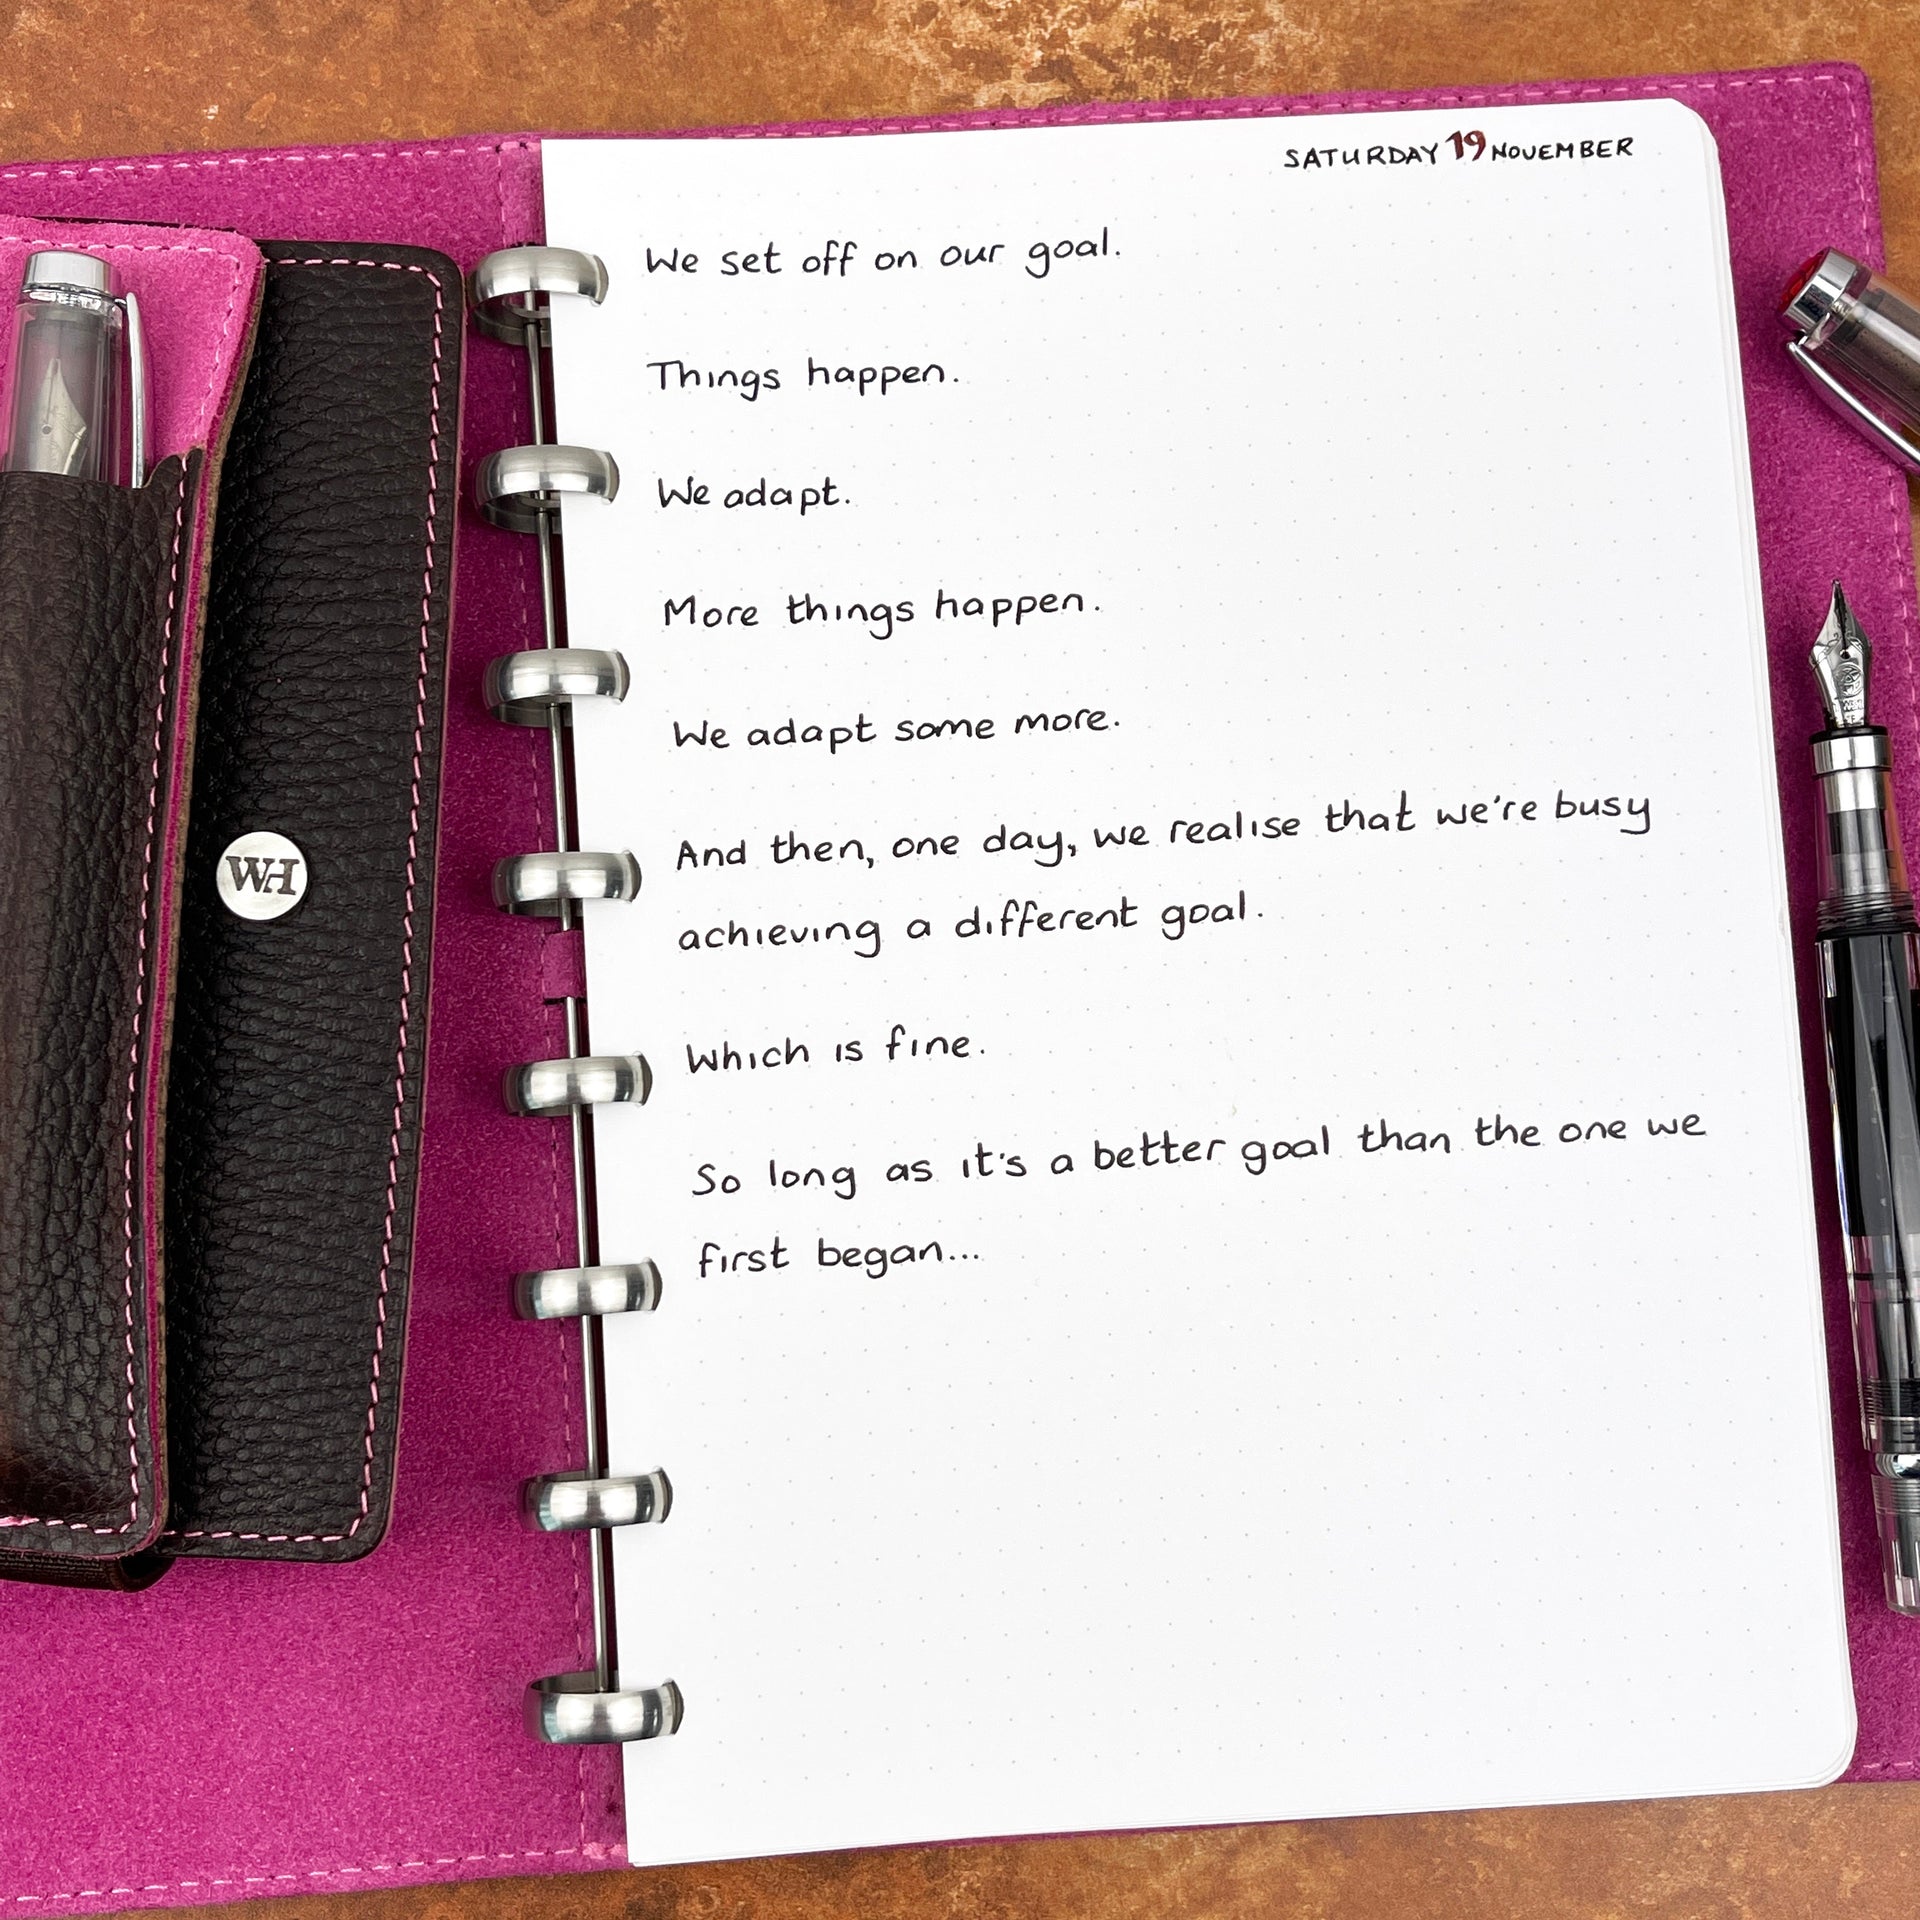 SATURDAY 19 NOVEMBER
We set off on our goal.
Things happen.
We adapt.
More things happen.
We adapt some more.
And then, one day, we realise that we're busy
achieving a different goal.
Which is fine.
So long as it's a better goal than the one we
first began...
WH